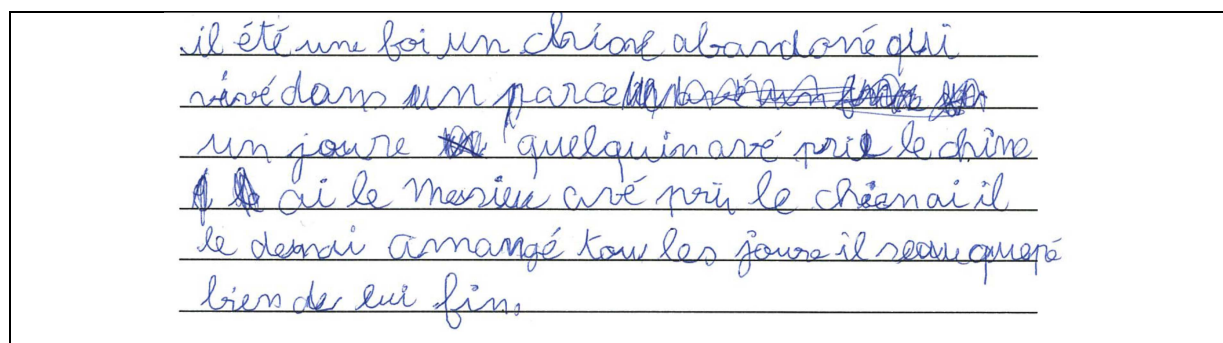 il été une foi un chiane abandoné qui
vivé dans un parce
un joure quelquin avé pri le chine
ai le mesieu avé pri le chienai il
le denai amangé tou les joure il seauquepé
bien de lui fin.